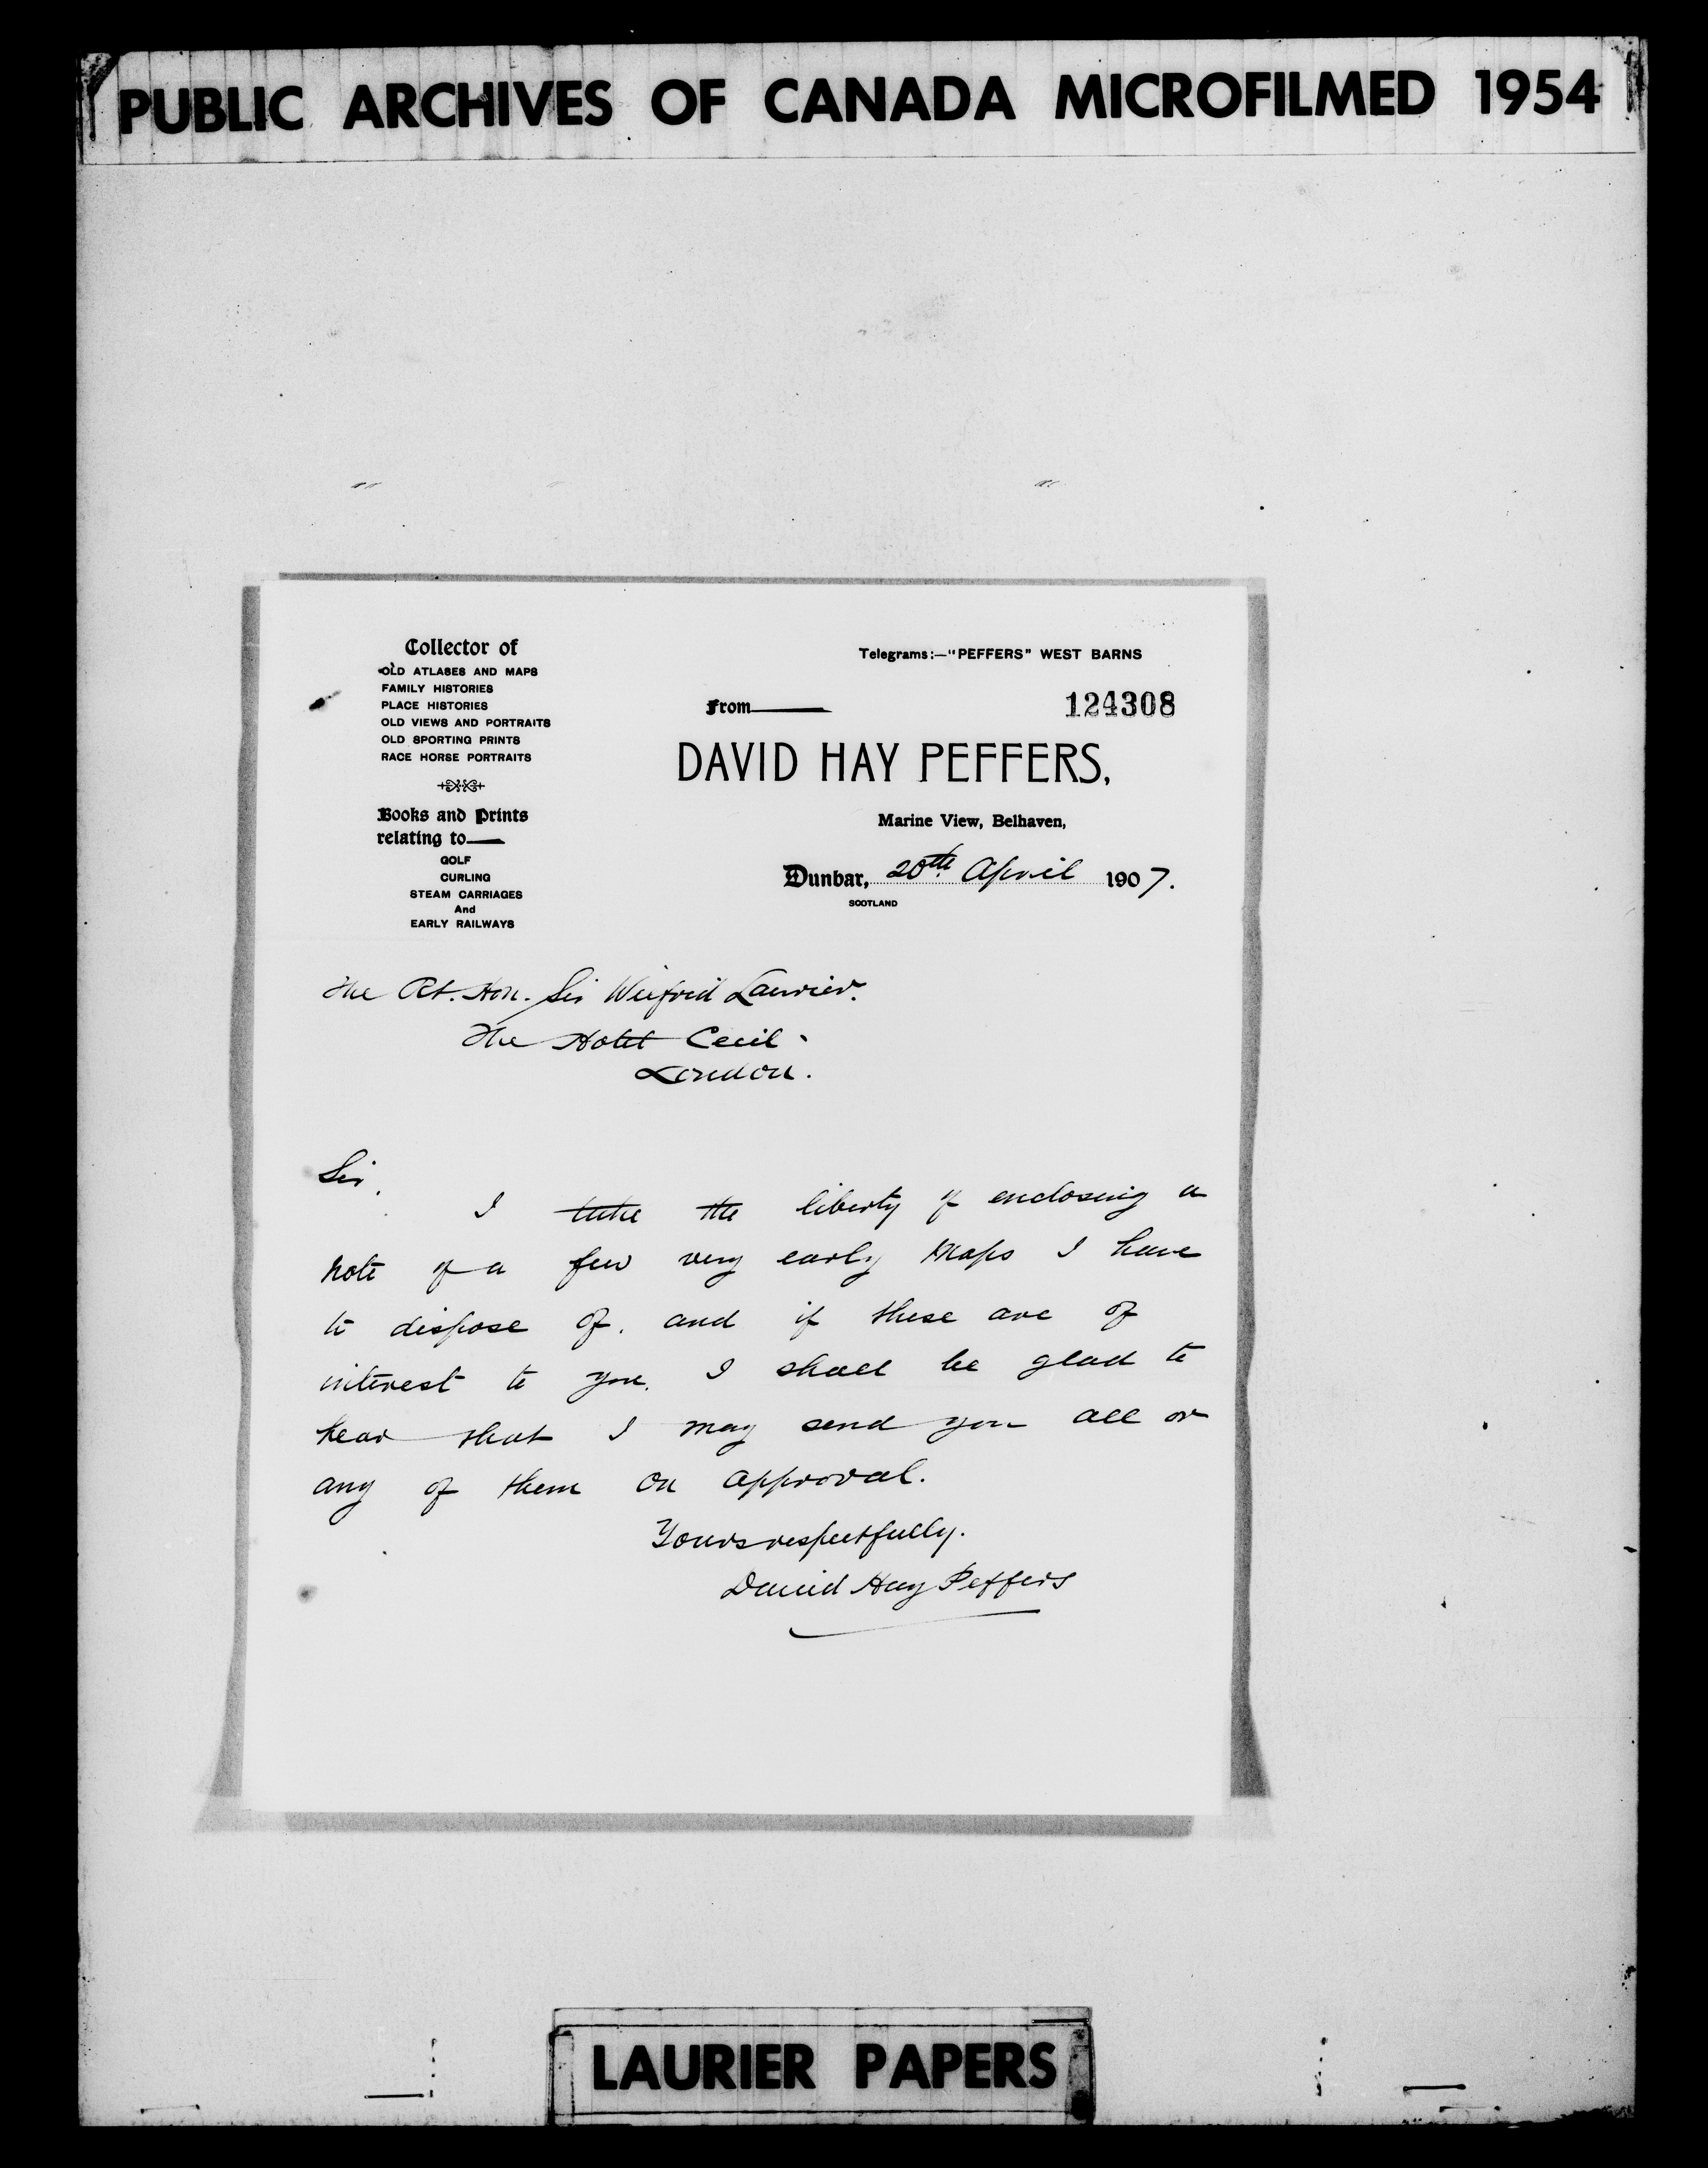 PUBLIC ARCHIVES OF CANADA MICROFILMED 1954
Collector of
OLD ATLASES AND MAPS
FAMILY HISTORIES
PLACE HISTORIES
OLD VIEWS AND PORTRAITS
OLD SPORTING PRINTS
RACE HORSE PORTRAITS
Books and Prints
relating to—
GOLF
CURLING
STEAM CARRIAGES
And
EARLY RAILWAYS
Telegrams:—"PEFFERS" WEST BARNS
From—
124308
DAVID HAY PEFFERS,
Marine View, Belhaven,
Dunbar, 20th April 1907.
SCOTLAND
The Rt. Hon. Sir Wilfrid Laurier.
The Hotel Cecil.
London.
Sir,
I take the liberty of enclosing a
note of a few very early Maps I have
to dispose of. and if these are of
interest to you. I shall be glad to
hear that I may send you all or
any of them on approval.
Yours respectfully.
David Hay Peffers
LAURIER PAPERS